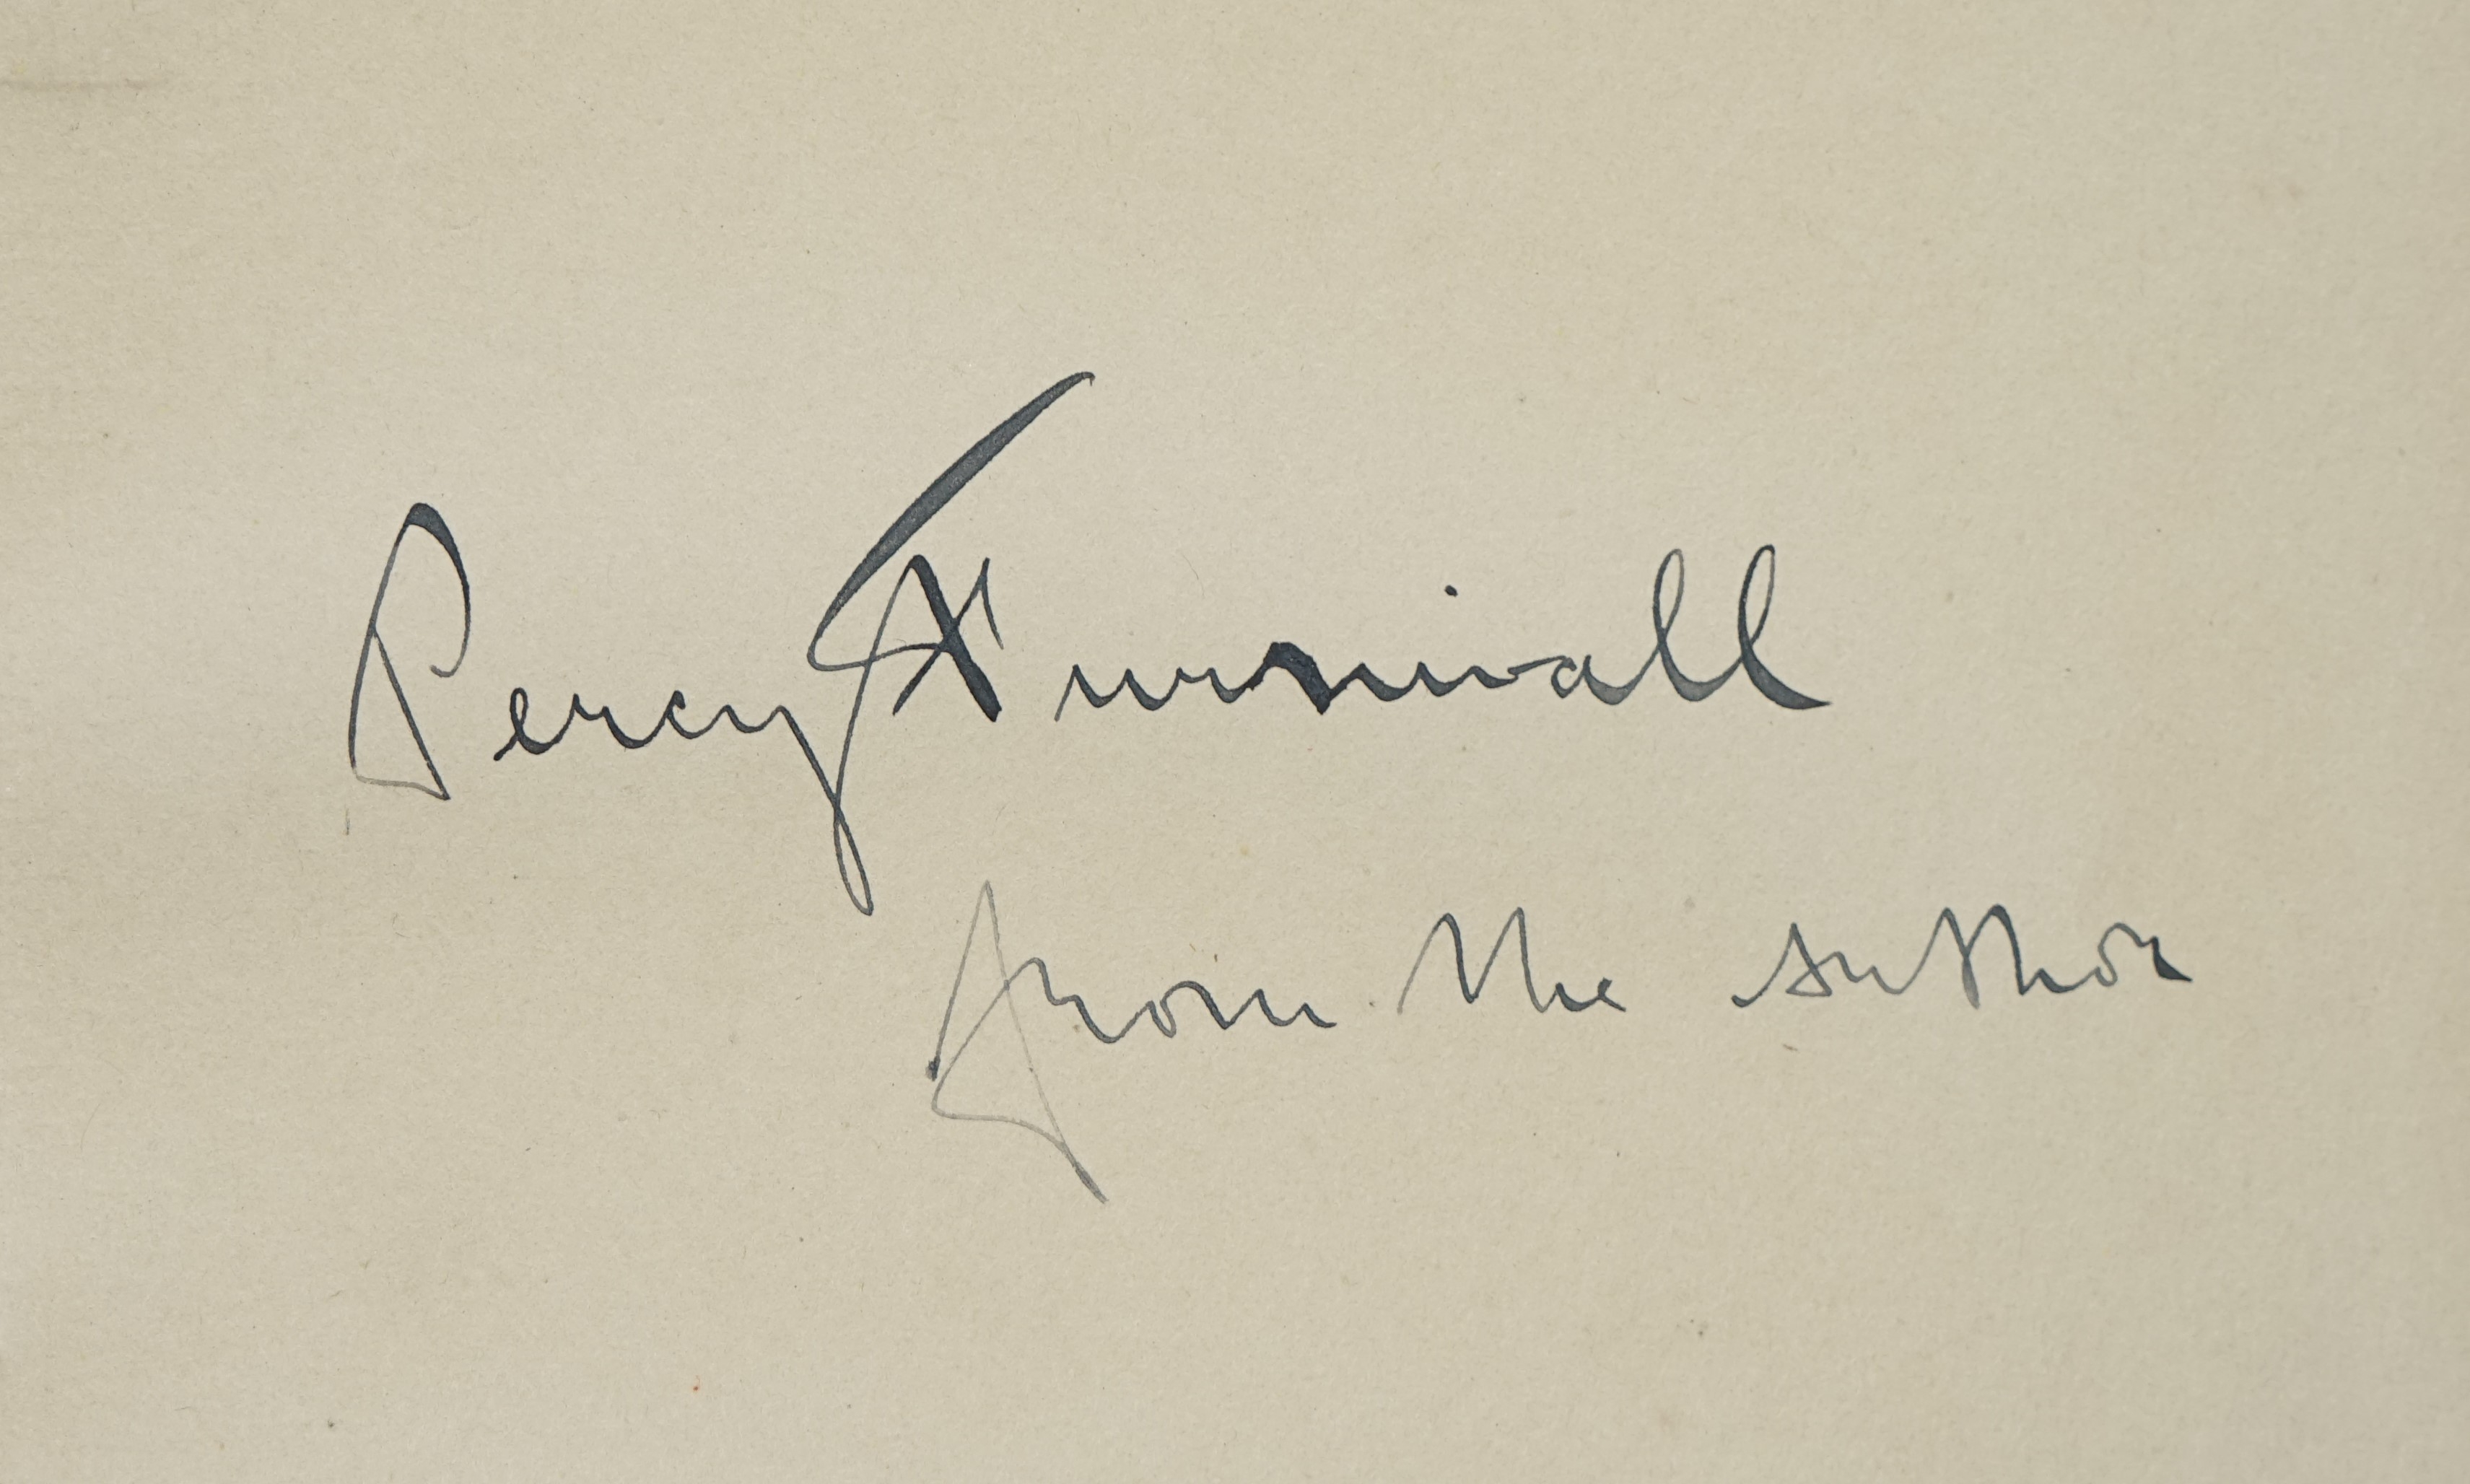 Percy Furnivall
from the author